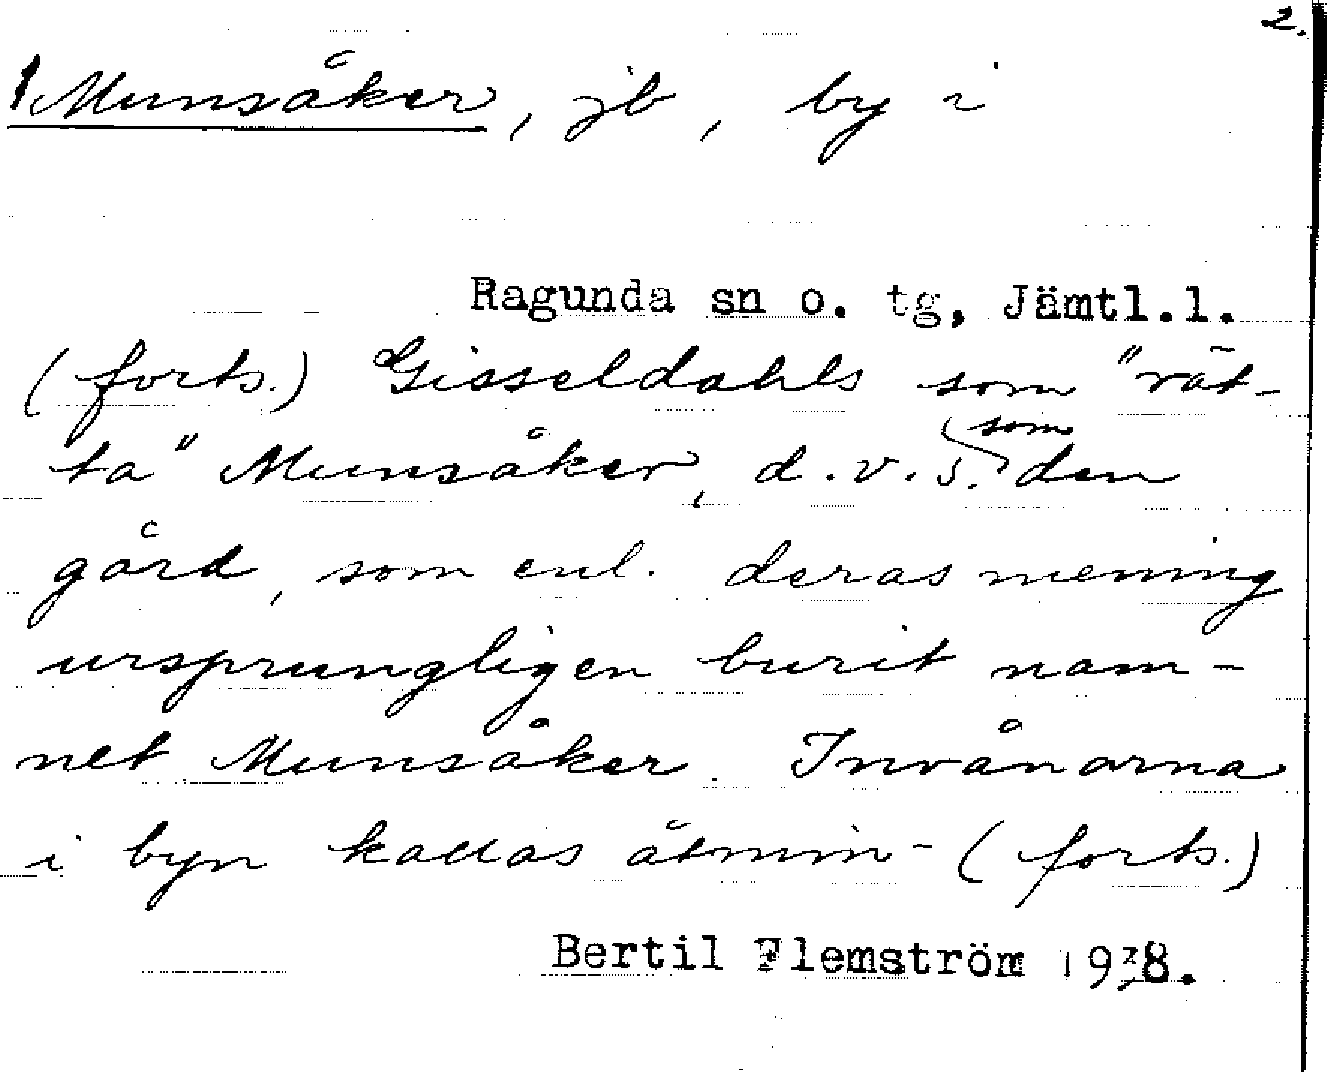 2.
Munsåker, jb, by i
Ragunda sn o. tg, Jämtl.l.
(forts.) Gisseldahls som "rät-
som
ta" Munsåker, d.v.s. den
gård, som enl. deras mening
ursprungligen burit nam-
net Munsåker. Invånarna
i byn kallas åtmin- (forts.)
Bertil Flemström 1938.